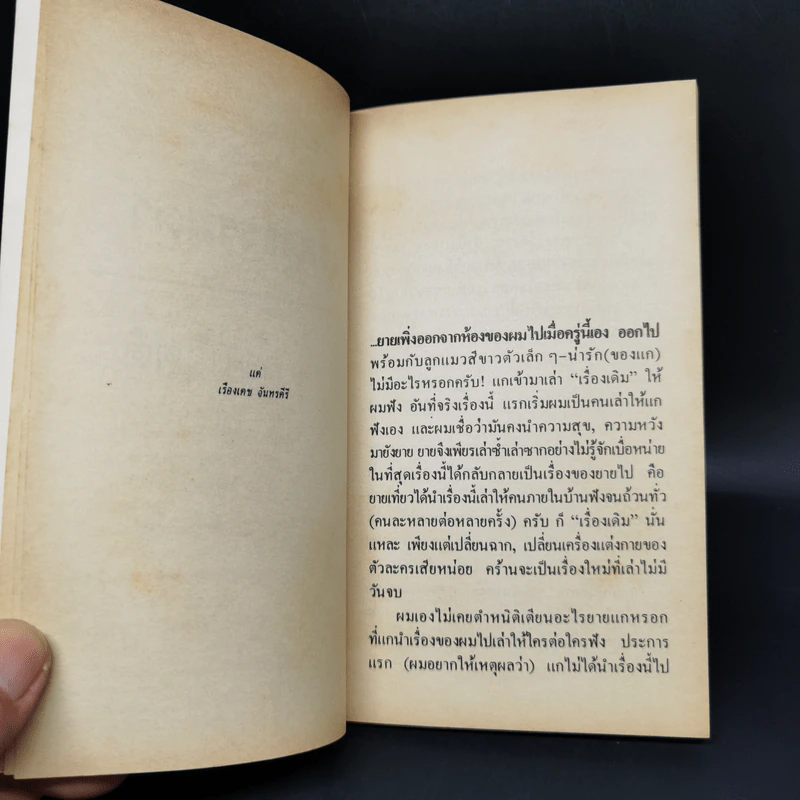 แด่
เรืองเดช จันทรคีรี
...ยายเพิ่งออกจากห้องของผมไปเมื่อครู่นี้เอง ออกไป
พร้อมกับลูกแมวสีขาวตัวเล็ก ๆ-น่ารัก(ของแก)
ไม่มีอะไรหรอกครับ! แกเข้ามาเล่า “เรื่องเดิม” ให้
ผมฟัง อันที่จริงเรื่องนี้ แรกเริ่มผมเป็นคนเล่าให้แก
ฟังเอง และผมเชื่อว่ามันคงนำความสุข, ความหวัง
มายังยาย ยายจึงเพียรเล่าซ้ำเล่าซากอย่างไม่รู้จักเบื่อหน่าย
ในที่สุดเรื่องนี้ได้กลับกลายเป็นเรื่องของยายไป คือ
ยายเที่ยวได้นำเรื่องนี้เล่าให้คนภายในบ้านฟังจนถ้วนทั่ว
(คนละหลายต่อหลายครั้ง) ครับ ก็ “เรื่องเดิม” นั่น
แหละ เพียงแต่เปลี่ยนฉาก, เปลี่ยนเครื่องแต่งกายของ
ตัวละครเสียหน่อย คร้านจะเป็นเรื่องใหม่ที่เล่าไม่มี
วันจบ
ผมเองไม่เคยตำหนิติเตียนอะไรยายแกหรอก
ที่แกนำเรื่องของผมไปเล่าให้ใครต่อใครฟัง ประการ
แรก (ผมอยากให้เหตุผลว่า) แกไม่ได้นำเรื่องนี้ไป